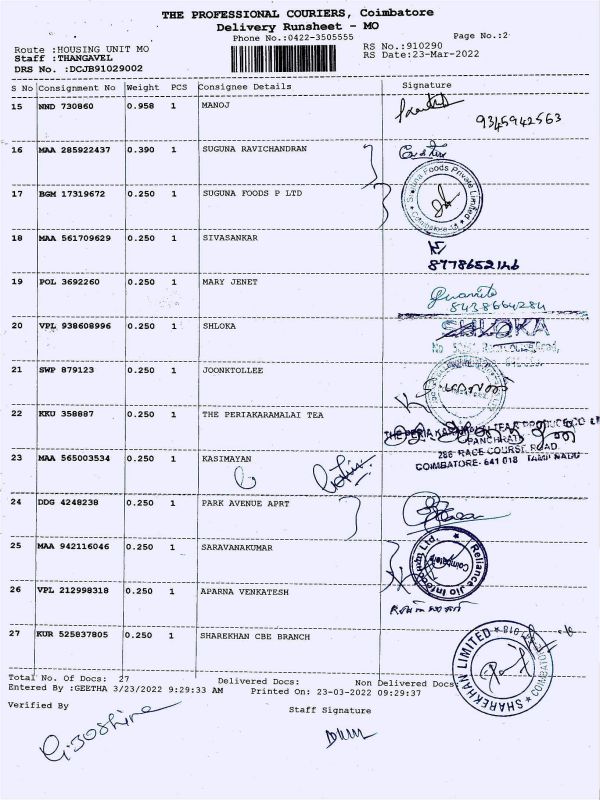 THE PROFESSIONAL COURIERS, Coimbatore
Delivery Runsheet - MO
Phone No.:0422-3505555
Page No.:2
Route :HOUSING UNIT MO
RS No.:910290
Staff :THANGAVEL
RS Date:23-Mar-2022
DRS No. :DCJB91029002
S No Consignment No Weight PCS Consignee Details Signature
15 NND 730860 0.958 1 MANOJ
9345942563
16 MAA 285922437 0.390 1 SUGUNA RAVICHANDRAN
17 BGM 17319672 0.250 1 SUGUNA FOODS P LTD
Suguna Foods Private Limited
Coimbatore-18
18 MAA 561709629 0.250 1 SIVASANKAR
8778652146
19 POL 3692260 0.250 1 MARY JENET
8438664284
20 VPL 938608996 0.250 1 SHLOKA
SHLOKA
21 SWP 879123 0.250 1 JOONKTOLLEE
22 KKU 358887 0.250 1 THE PERIAKARAMALAI TEA
THE PERIA KARAMALAI TEA & PRODUCE CO
PANCHRATN
286 RACE COURSE ROAD
COIMBATORE- 641 018 TAMIL NADU
23 MAA 565003534 0.250 1 KASIMAYAN
24 DDG 4248238 0.250 1 PARK AVENUE APRT
25 MAA 942116046 0.250 1 SARAVANAKUMAR
Reliance Jio Infocomm Ltd.
Coimbatore
26 VPL 212998318 0.250 1 APARNA VENKATESH
27 KUR 525837805 0.250 1 SHAREKHAN CBE BRANCH
SHAREKHAN LIMITED
COIMBATORE-641 018
Total No. Of Docs: 27 Delivered Docs: Non Delivered Docs:
Entered By :GEETHA 3/23/2022 9:29:33 AM Printed On: 23-03-2022 09:29:37
Verified By
Staff Signature